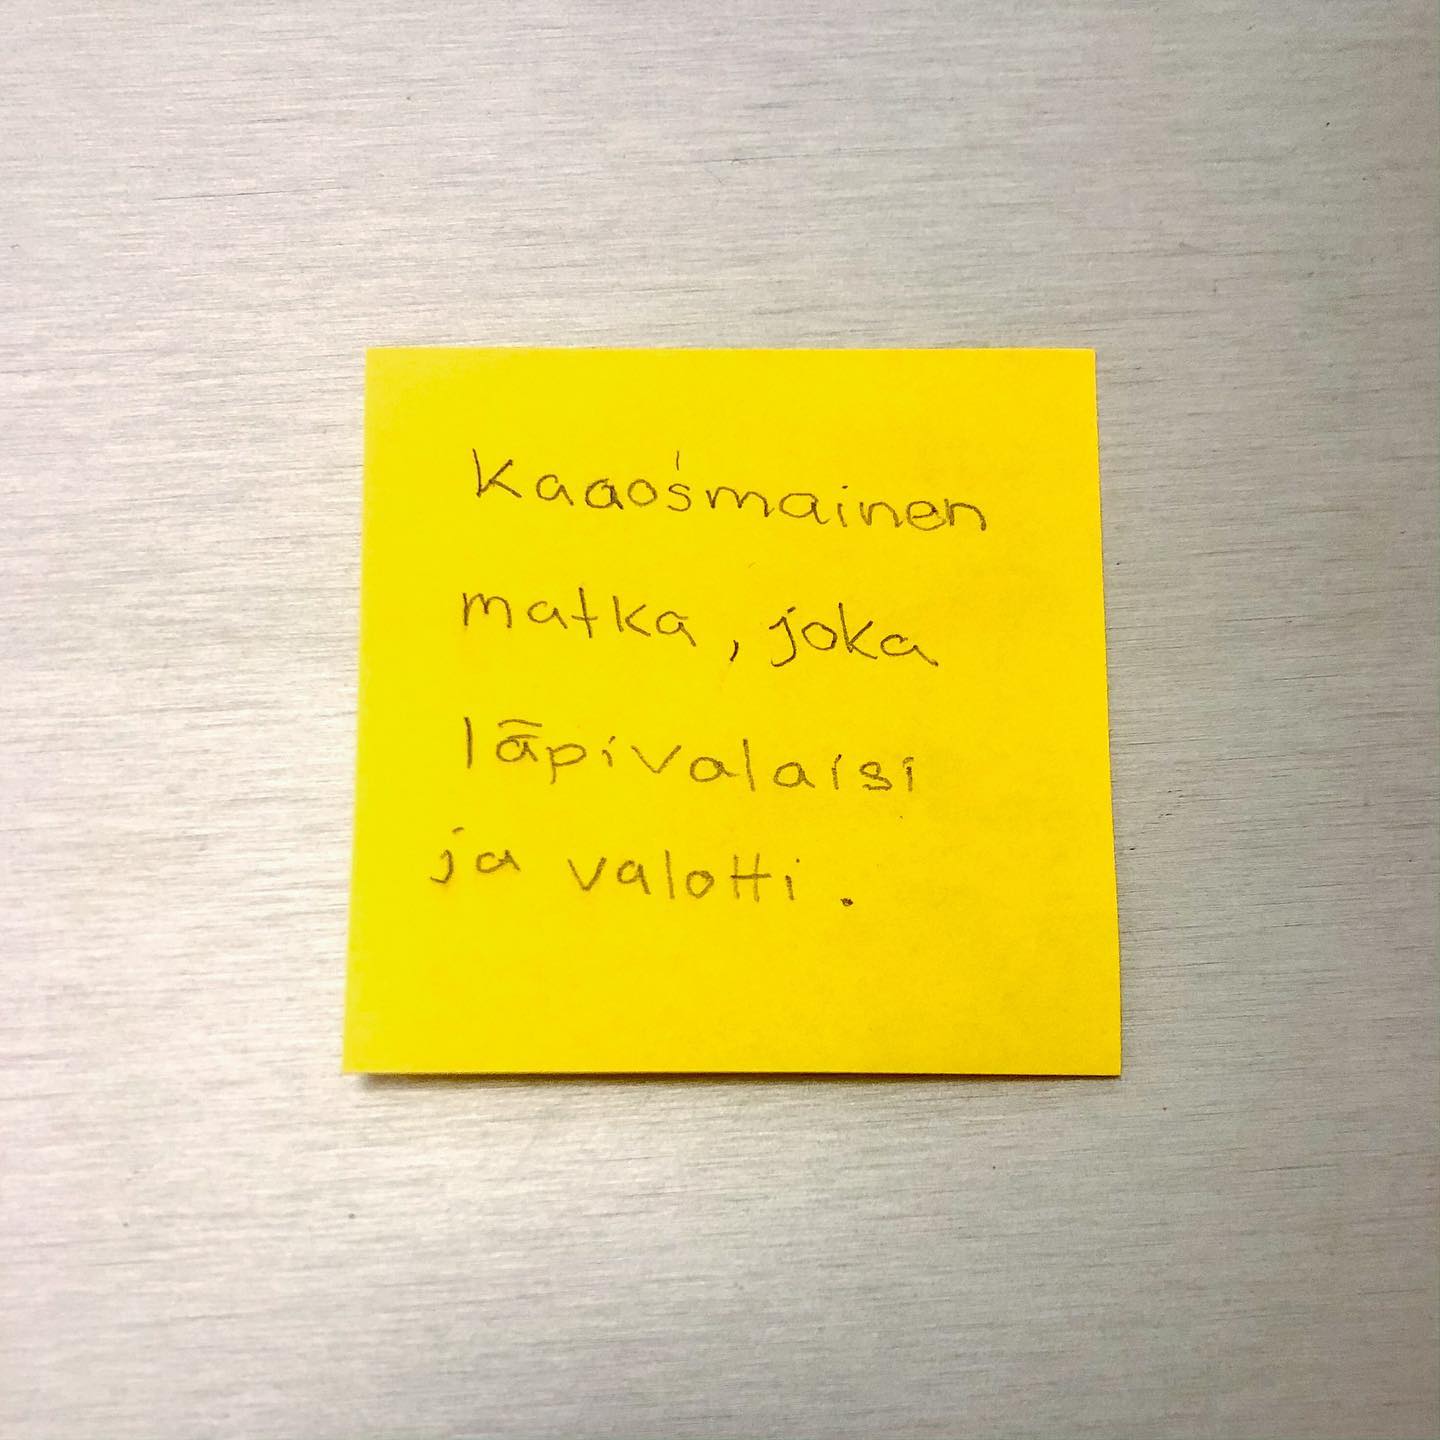 Kaaosmainen
matka, joka
läpivalaisi
ja valotti.